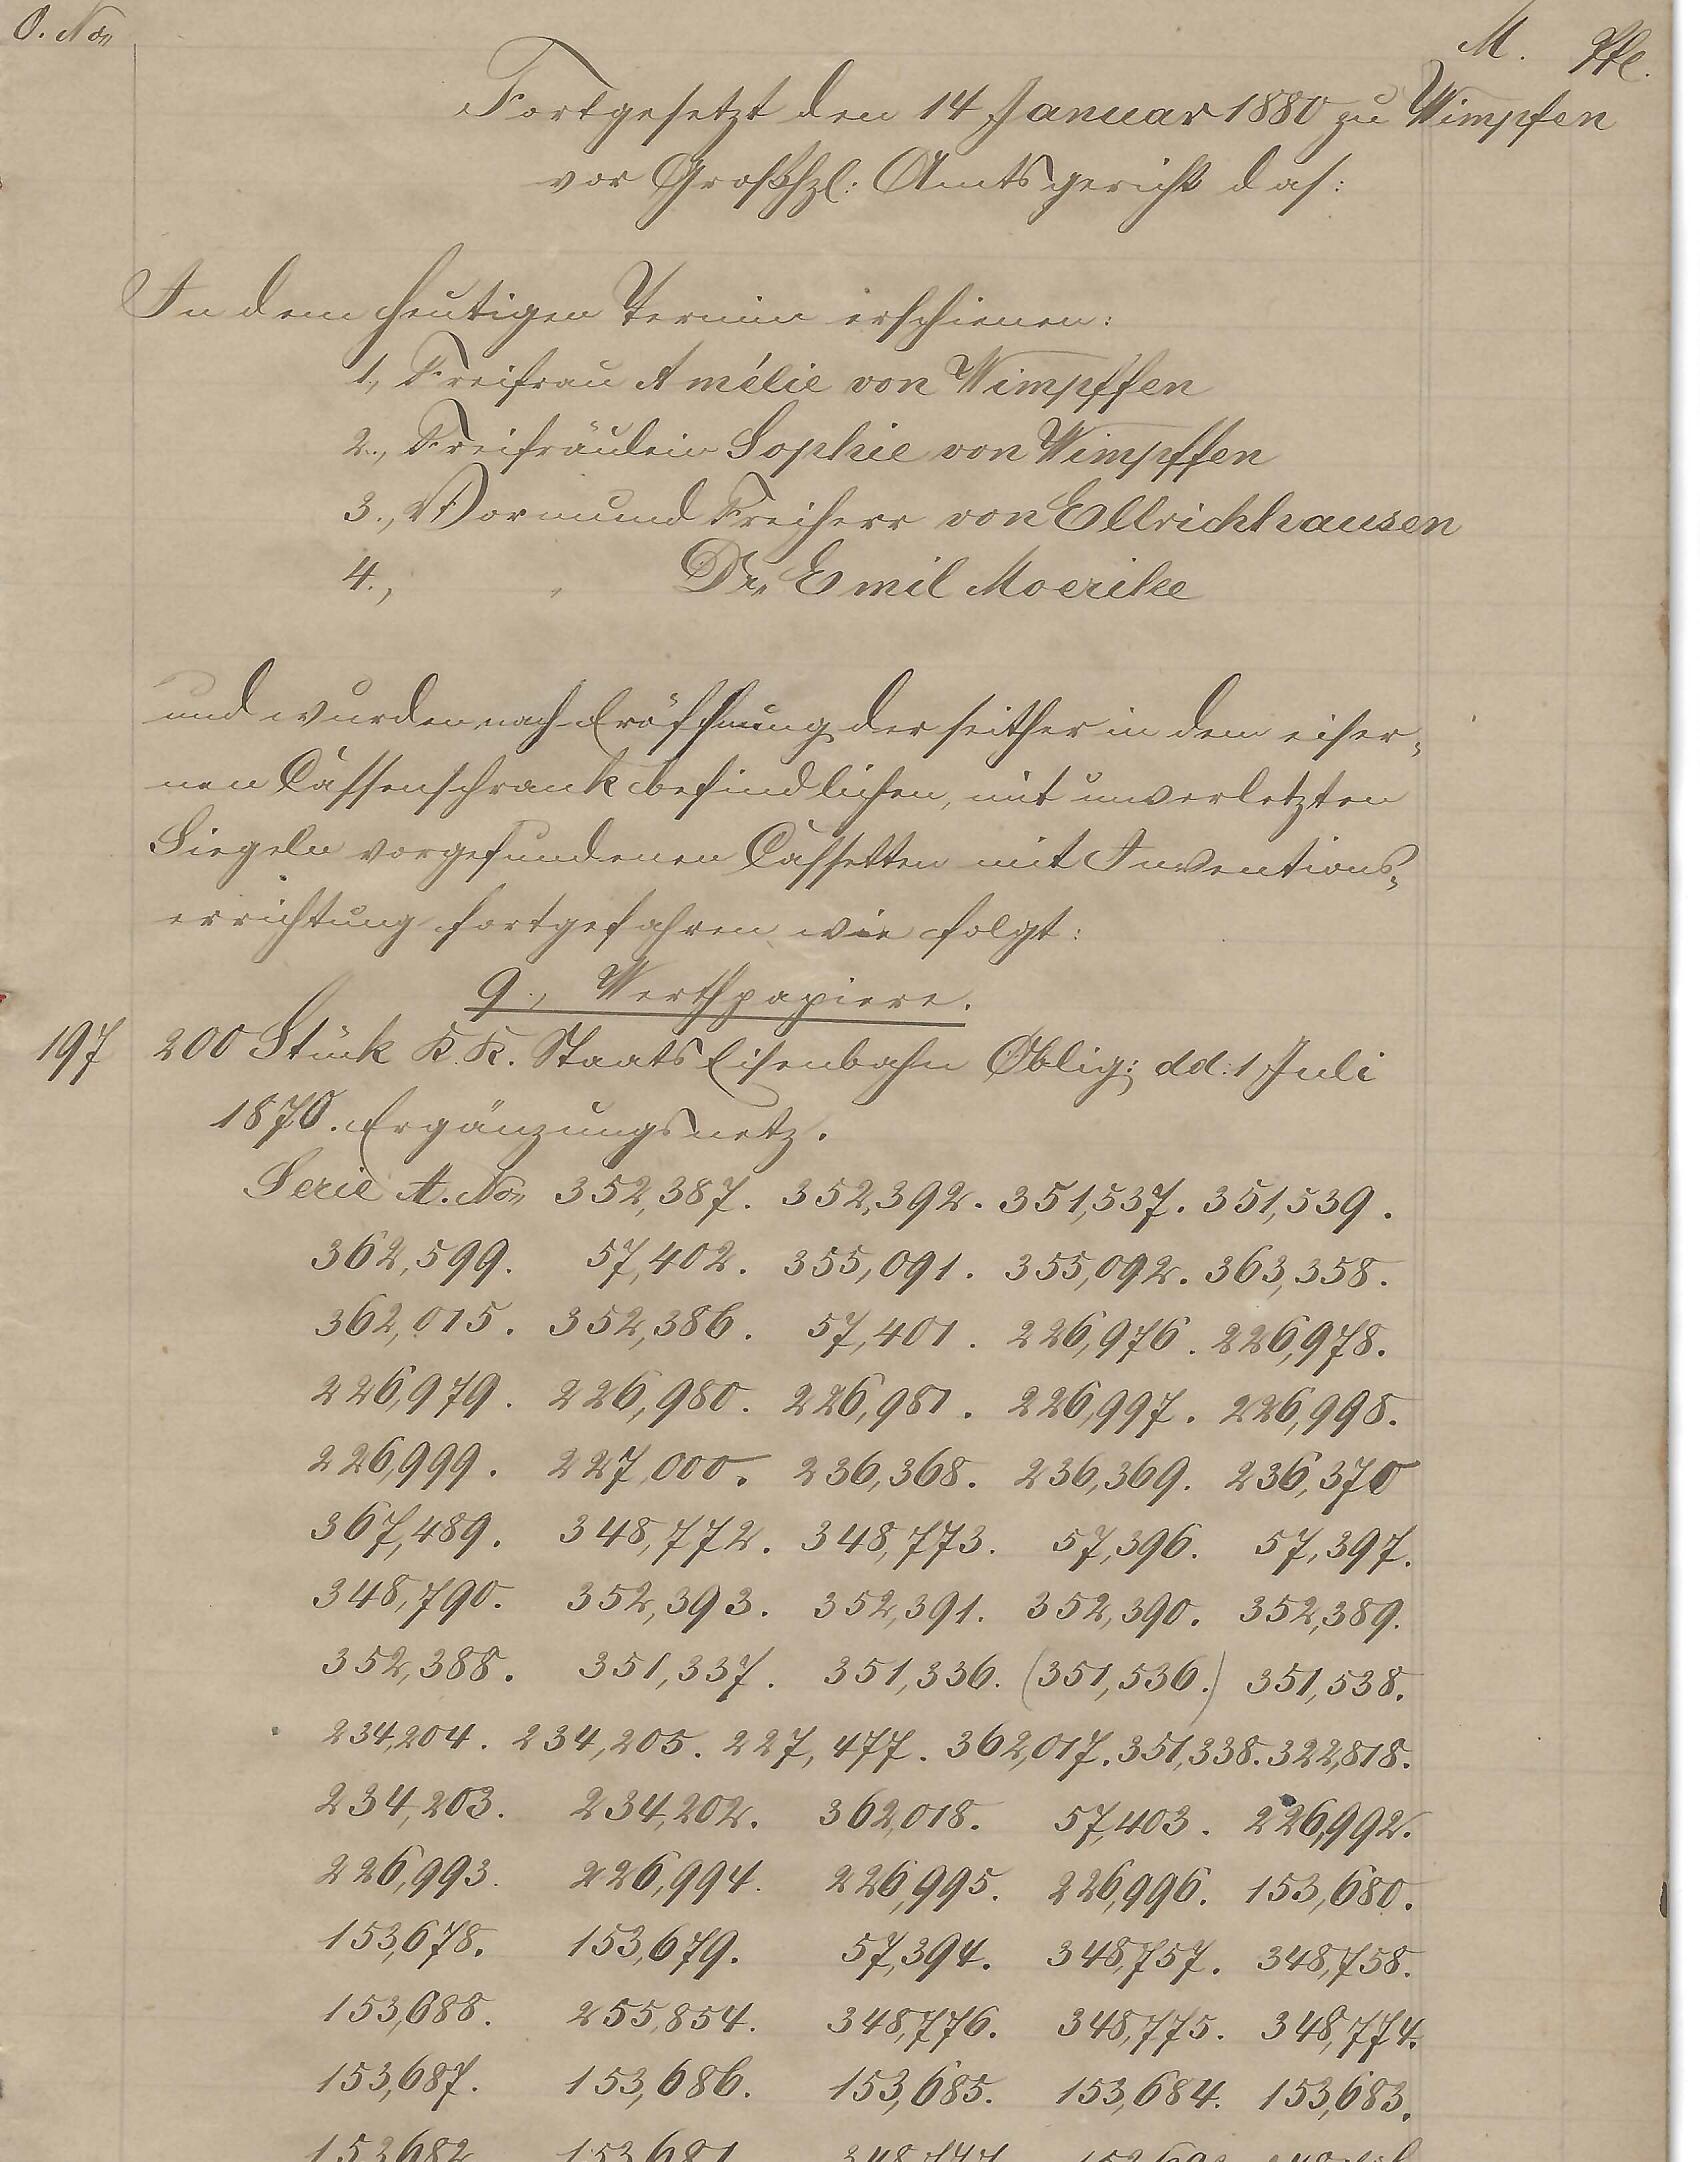 O. No.
M. Pfe.
Fortgesetzt den 14 Januar 1880 zu Wimpfen
vor Großhzl: Amtsgericht das:
In dem heutigen Termin erschienen:
1., Freifrau Amélie von Wimpffen
2., Freifräulein Sophie von Wimpffen
3., Vormund Freiherr von Ellrichhausen
4., " Dr. Emil Moerike
und wurden nach Eröffnung der seither in dem eiser-
nen Cassenschrank befindlichen, mit unverletzten
Siegeln vorgefundenen Cassetten mit Inventions-
errichtung fortgefahren wie folgt:
9., Werthpapiere.
197 200 Stück K.K. Staats Eisenbahn Oblig: dd: 1 Juli
1870. Ergänzungsnetz.
Serie A. No. 352,387. 352,392. 351,537. 351,539.
362,599. 57,402. 355,091. 355,092. 363,358.
362,015. 352,386. 57,401. 226,976. 226,978.
226,979. 226,980. 226,981. 226,997. 226,998.
226,999. 227,000. 236,368. 236,369. 236,370
367,489. 348,772. 348,773. 57,396. 57,397.
348,790. 352,393. 352,391. 352,390. 352,389.
352,388. 351,337. 351,336. (351,536.) 351,538.
234,204. 234,205. 227,477. 362,017. 351,338. 322,818.
234,203. 234,202. 362,018. 57,403. 226,992.
226,993. 226,994. 226,995. 226,996. 153,680.
153,678. 153,679. 57,394. 348,757. 348,758.
153,688. 255,854. 348,776. 348,775. 348,774.
153,687. 153,686. 153,685. 153,684. 153,683.
153,682 153,681